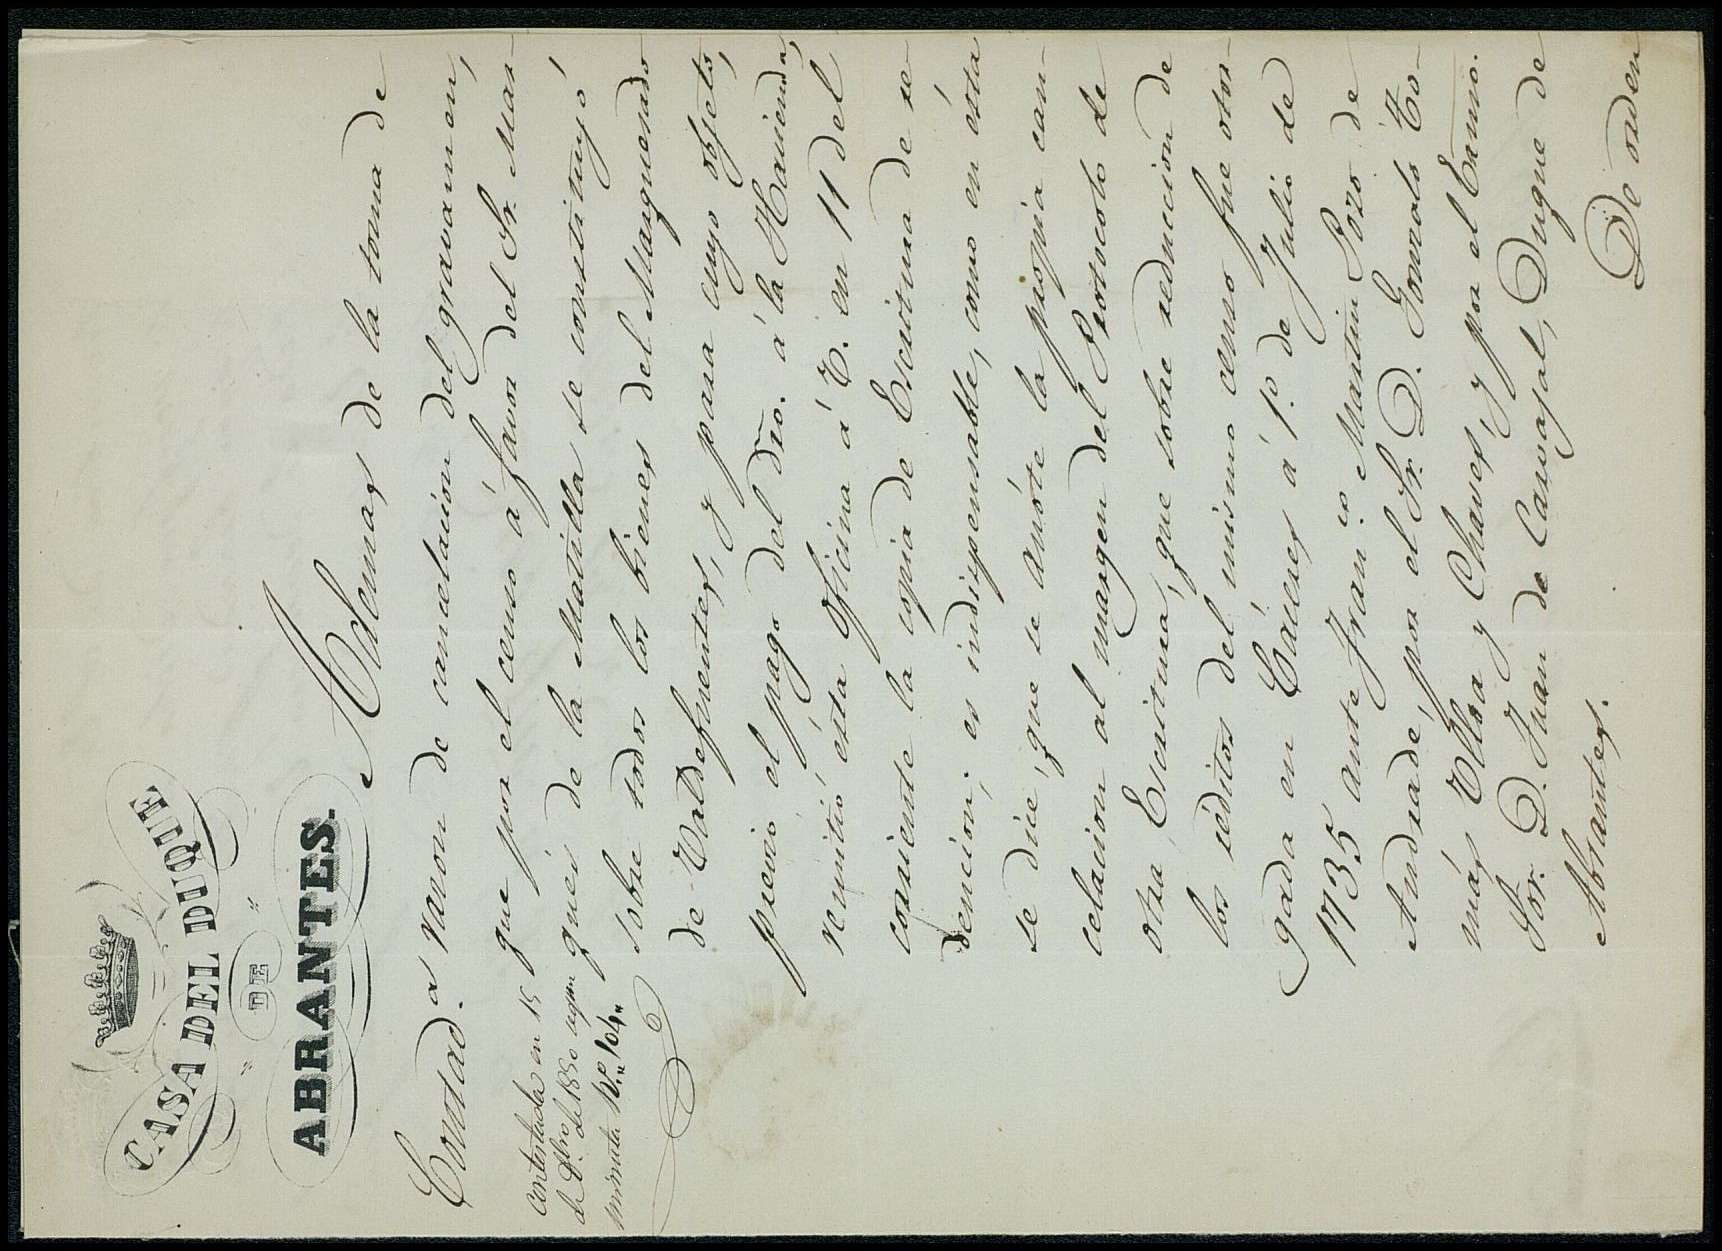 CASA DEL DUQUE
" DE "
ABRANTES.
Contad.ª
Contestada en 15
de 8bre de 1850 segun
minuta N.º 104"
Ademas de la toma de
razon de cancelacion del gravamen,
que por el censo á favor del Sr. Mar-
qués de la Matilla se constituyó
sobre todos los bienes del Marquesado
de Valdefuentes, y para cuyo objeto,
previo el pago del dro. á la Hacienda,
remitió ésta Oficina á V. en 11 del
corriente la copia de Escritura de re-
dencion; es indispensable, como en ésta
se dice, que se anóte la propia can-
celacion al margen del Protocolo de
otra Escritura, que sobre reduccion de
los réditos del mismo censo fue otor-
gada en Cáceres á 1.º de Julio de
1735 ante Fran.co Martin Pozo de
Andrade, por el Sr. D. Gonzalo To-
más Ulloa y Chaves, y por el Excmo.
Sor. D. Juan de Carvajal, Duque de
Abrantes.
De orden